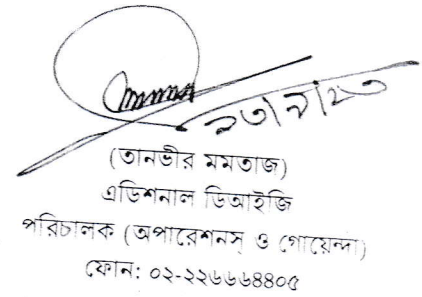 (তানভীর মমতাজ)
এডিশনাল ডিআইজি
পরিচালক (অপারেশনস্ ও গোয়েন্দা)
ফোন: ০২-২২৬৬৬৪৪০৫